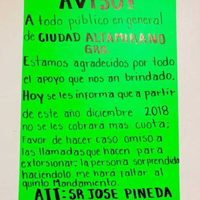 AVISO!
A todo público en general
de CIUDAD ALTAMIRANO
GRO.
Estamos agradecidos por todo
el apoyo que nos an brindado.
Hoy se les informa que a partir
de este año diciembre 2018
no se les cobrara mas cuota;
Favor de hacer caso omiso a
las llamadas que hacen para
extorsionar: la persona sorprendida
haciendolo me hará faltar al
quinto Mandamiento.
ATT: SR JOSE PINEDA